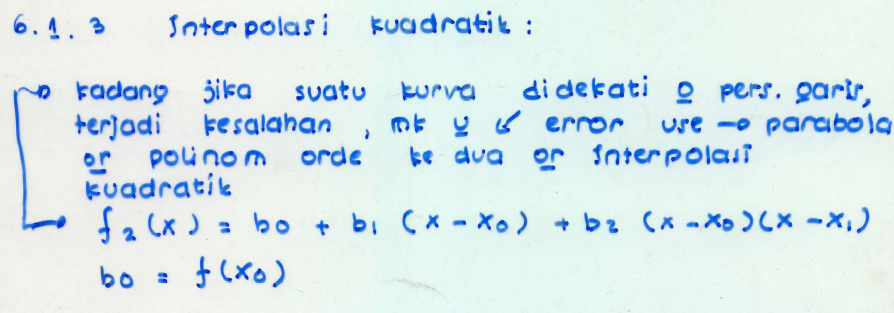 6.1.3 Interpolasi kuadratik :
kadang jika suatu kurva didekati o pers. garis,
terjadi kesalahan, mk u ↙ error use → parabola
or polinom orde ke dua or Interpolasi
kuadratik
f₂(x) = b₀ + b₁ (x - x₀) + b₂ (x - x₀)(x - x₁)
b₀ = f(x₀)